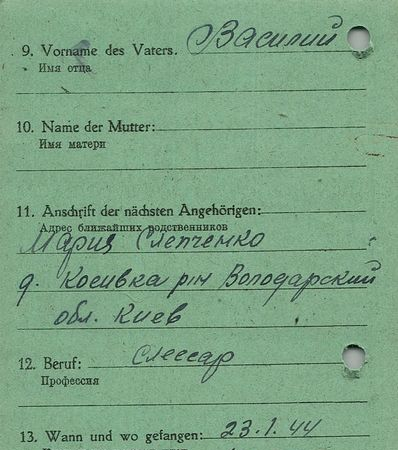 9. Vorname des Vaters. Василий
Имя отца
10. Name der Mutter:
Имя матери
11. Anschrift der nächsten Angehörigen:
Адрес ближайших родственников
Мария Слепченко
д. Косивка р/н Володарский
обл. Киев
12. Beruf: слессар
Профессия
13. Wann und wo gefangen: 23.1.44